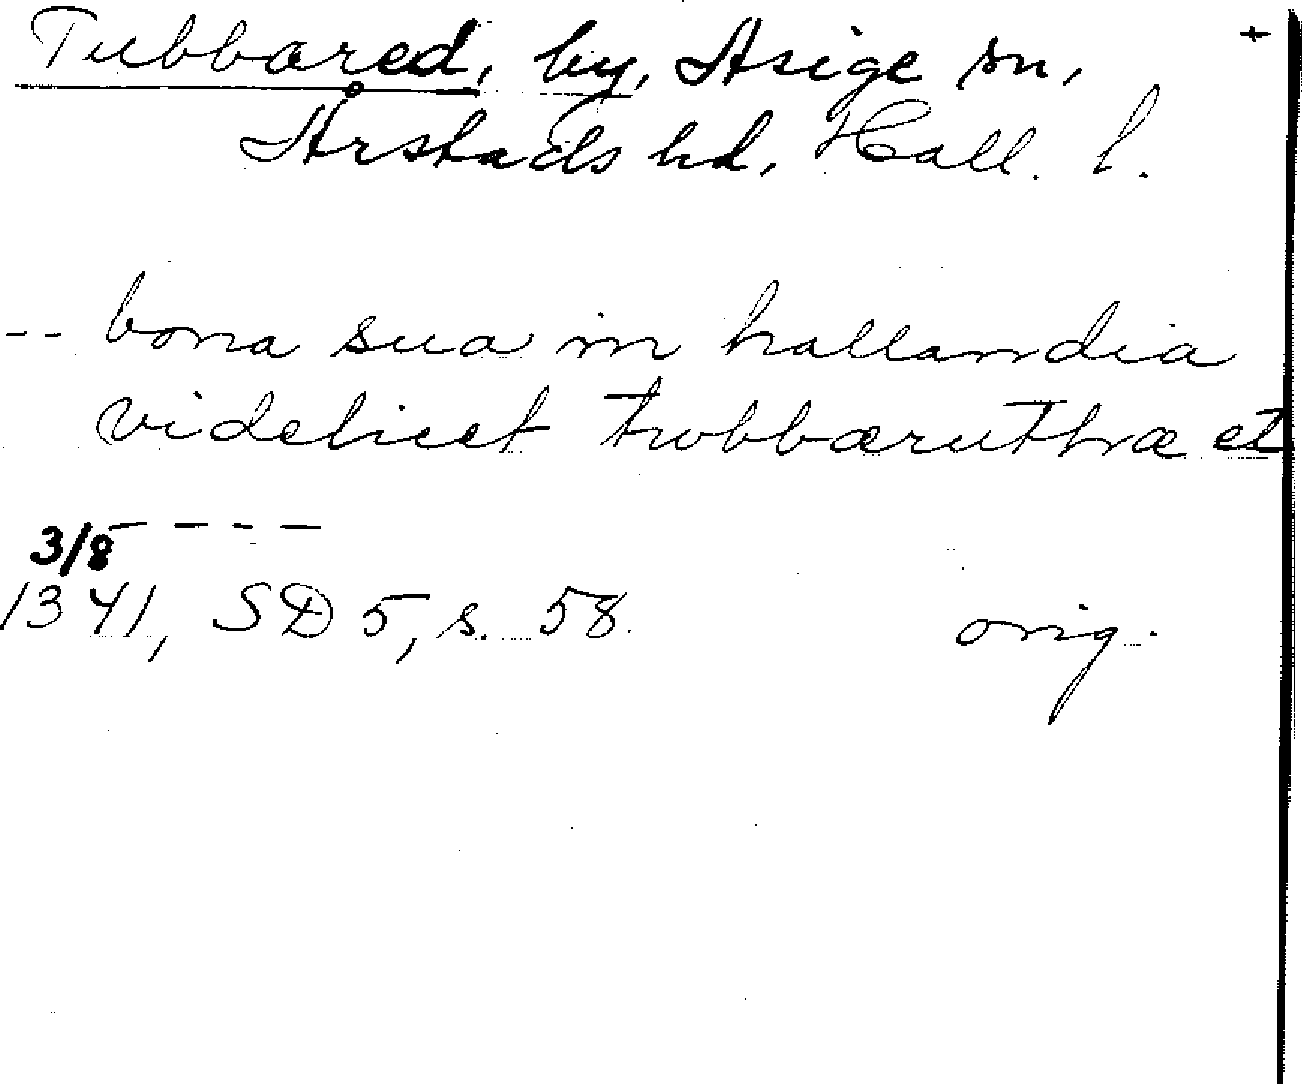 Tubbared, by, Asige sn, +
Årstads hd, Hall. l.
-- bona sua in hallandia
videlicet tubbæruthræ et
- - - -
3/8
1341, SD 5, s. 58. orig.